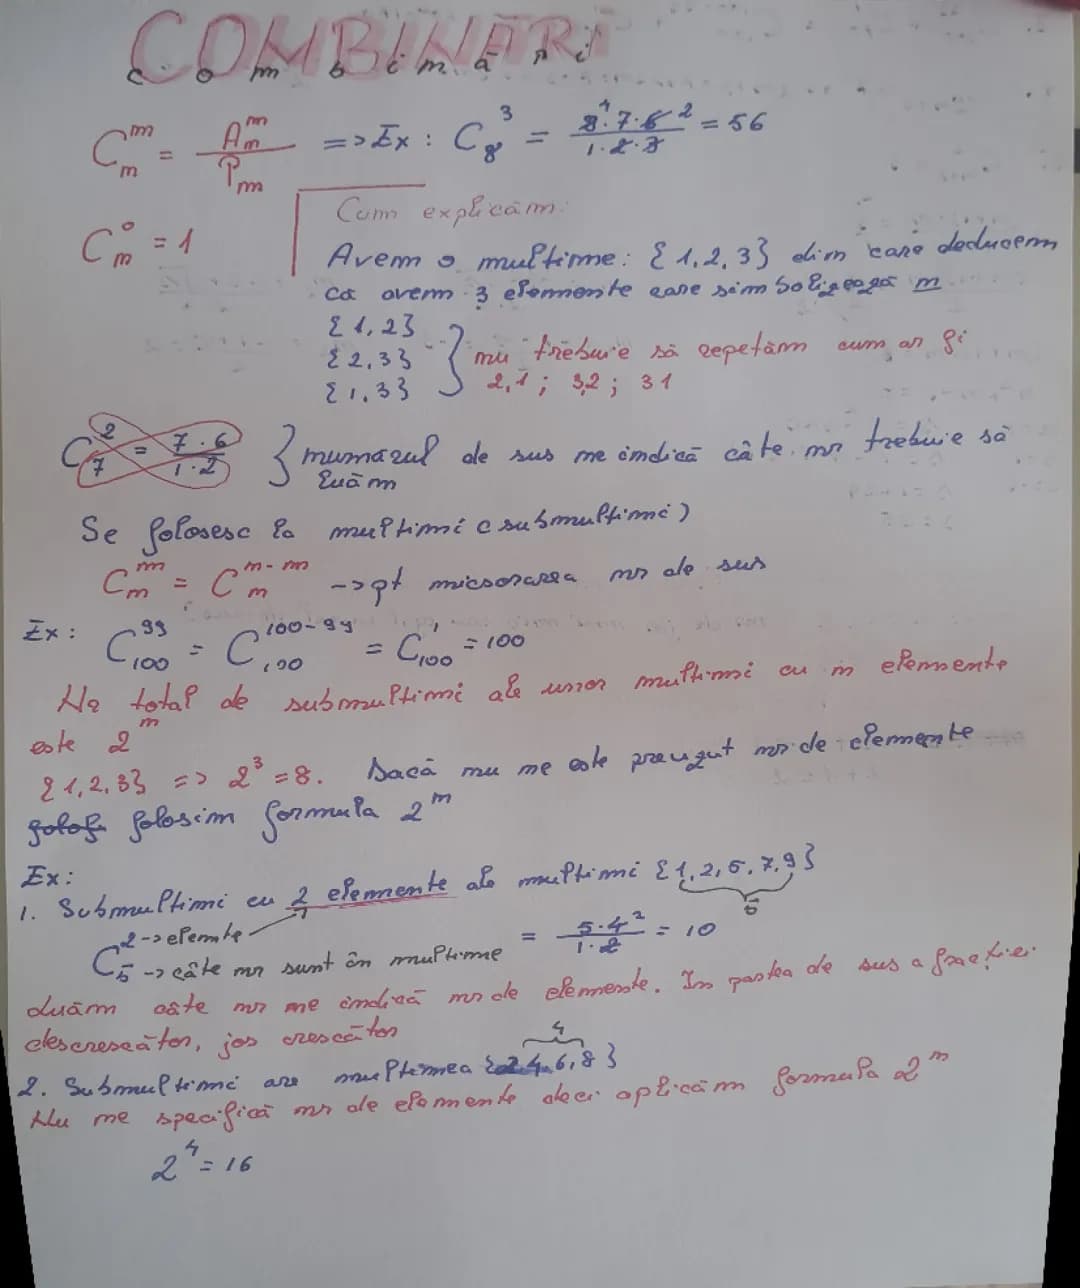 COMBINĂRI
combinări
C_n^m = A_n^m / P_m => Ex: C_8^3 = 8·7·6 / 1·2·3 = 56
C_n^0 = 1
Cum explicăm:
Avem o multime: {1,2,3} din care deducem
că avem 3 elemente care simbolizează n
{1,2}
{2,3}
{1,3}
} nu trebuie să repetăm cum ar fi
2,1; 3,2; 31
C_7^2 = 7·6 / 1·2 } numărul de sus ne indică câte nr trebuie să
luăm
Se folosesc la multimi (submultimi)
C_n^m = C_n^{n-m} -> pt micsorarea nr de sus
Ex: C_100^99 = C_100^{100-99} = C_100^1 = 100
Nr total de submultimi ale unor multimi cu n elemente
este 2^n
{1,2,3} => 2^3 = 8. Dacă nu ne este precizat nr de elemente
folosim formula 2^n
Ex:
1. Submultimi cu 2 elemente ale multimi {1,2,5,7,9}
5
C_5^2 -> elemnte
-> câte nr sunt în multime = 5·4^2 / 1·2 = 10
Luăm câte nr ne indică nr de elemente. În partea de sus a fracției
descrescător, jos crescător
4
2. Submultimi are multimea {2,4,6,8}
Nu ne specifică nr de elemente deci aplicăm formula 2^n
2^4 = 16